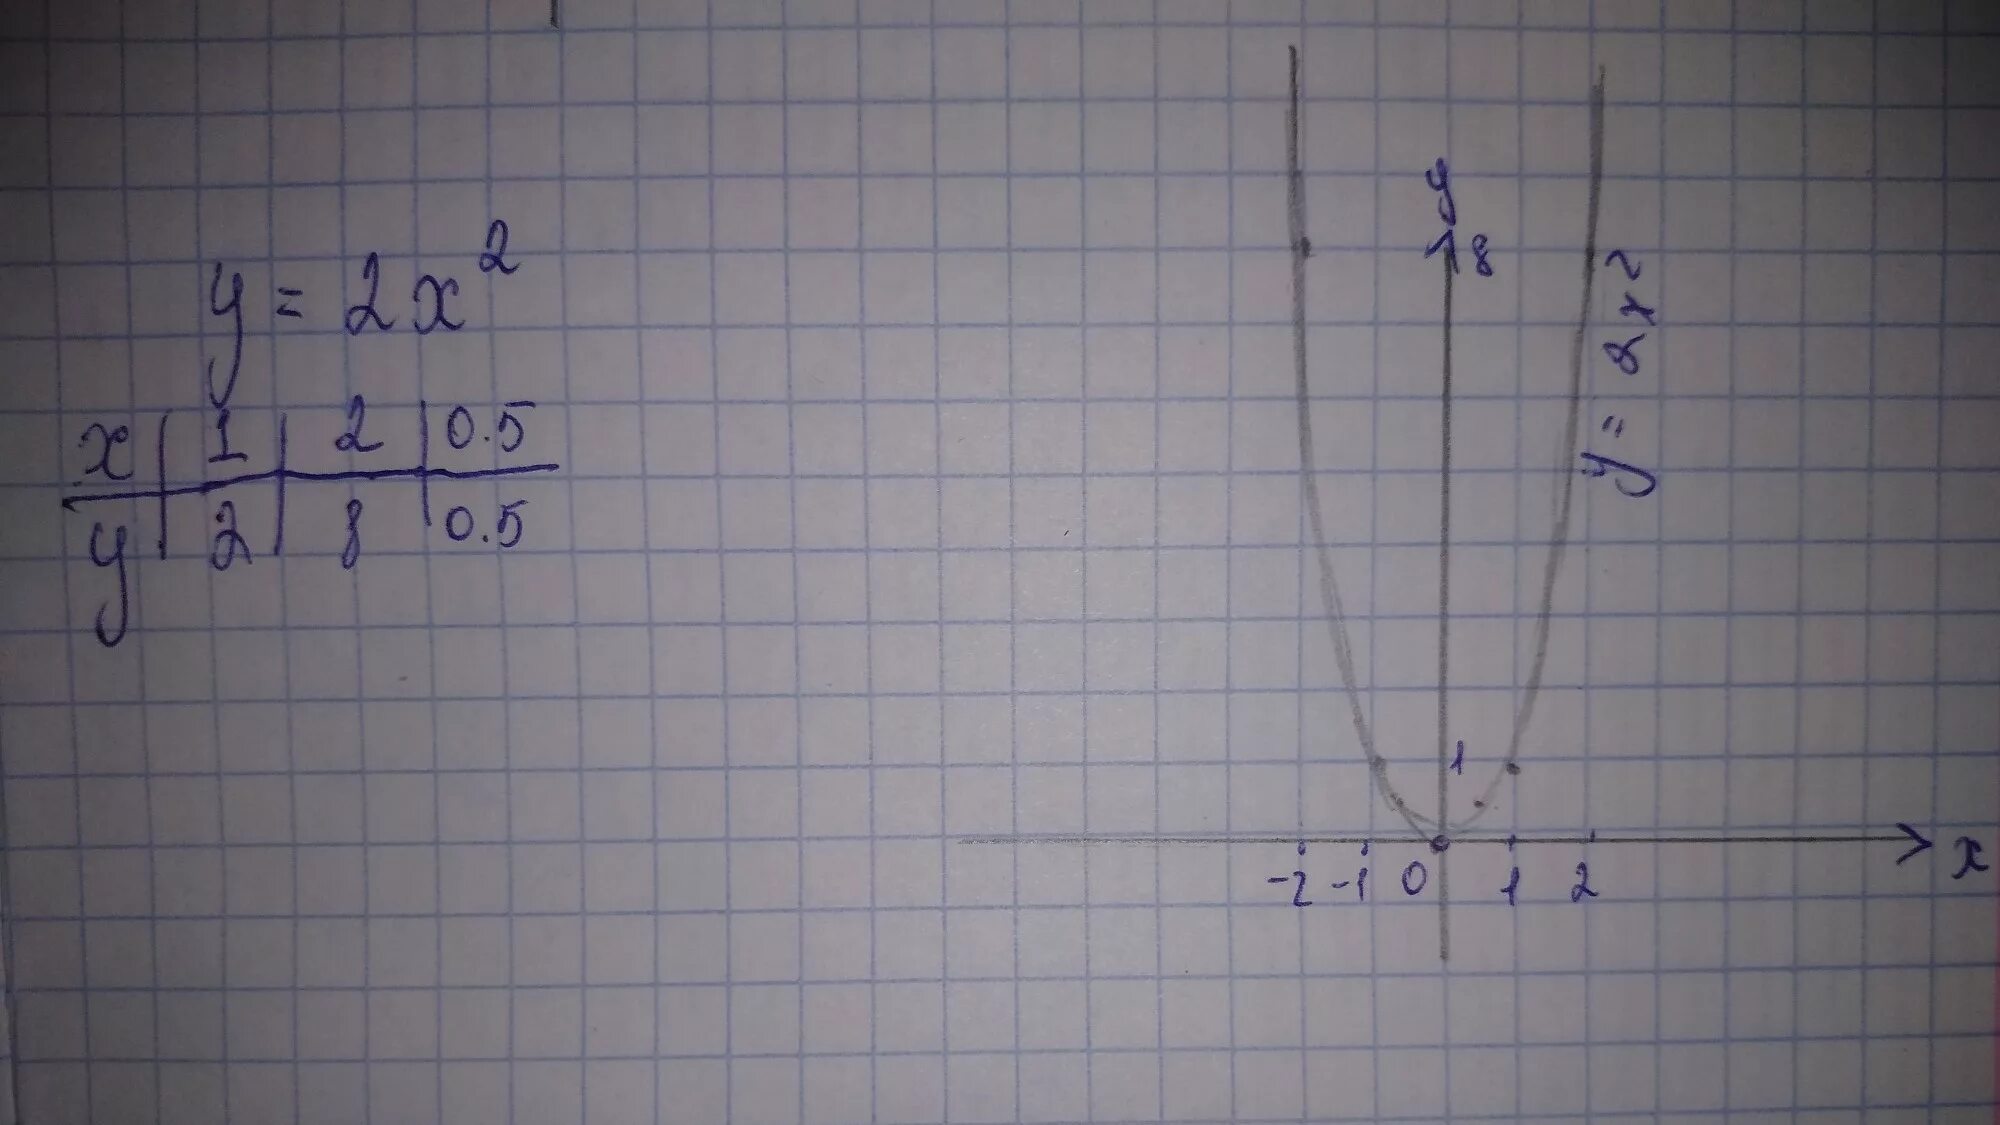 y = 2x²
x | 1 | 2 | 0.5
y | 2 | 8 | 0.5
y
8
y = 2x²
1
-2 -1 0 1 2
x